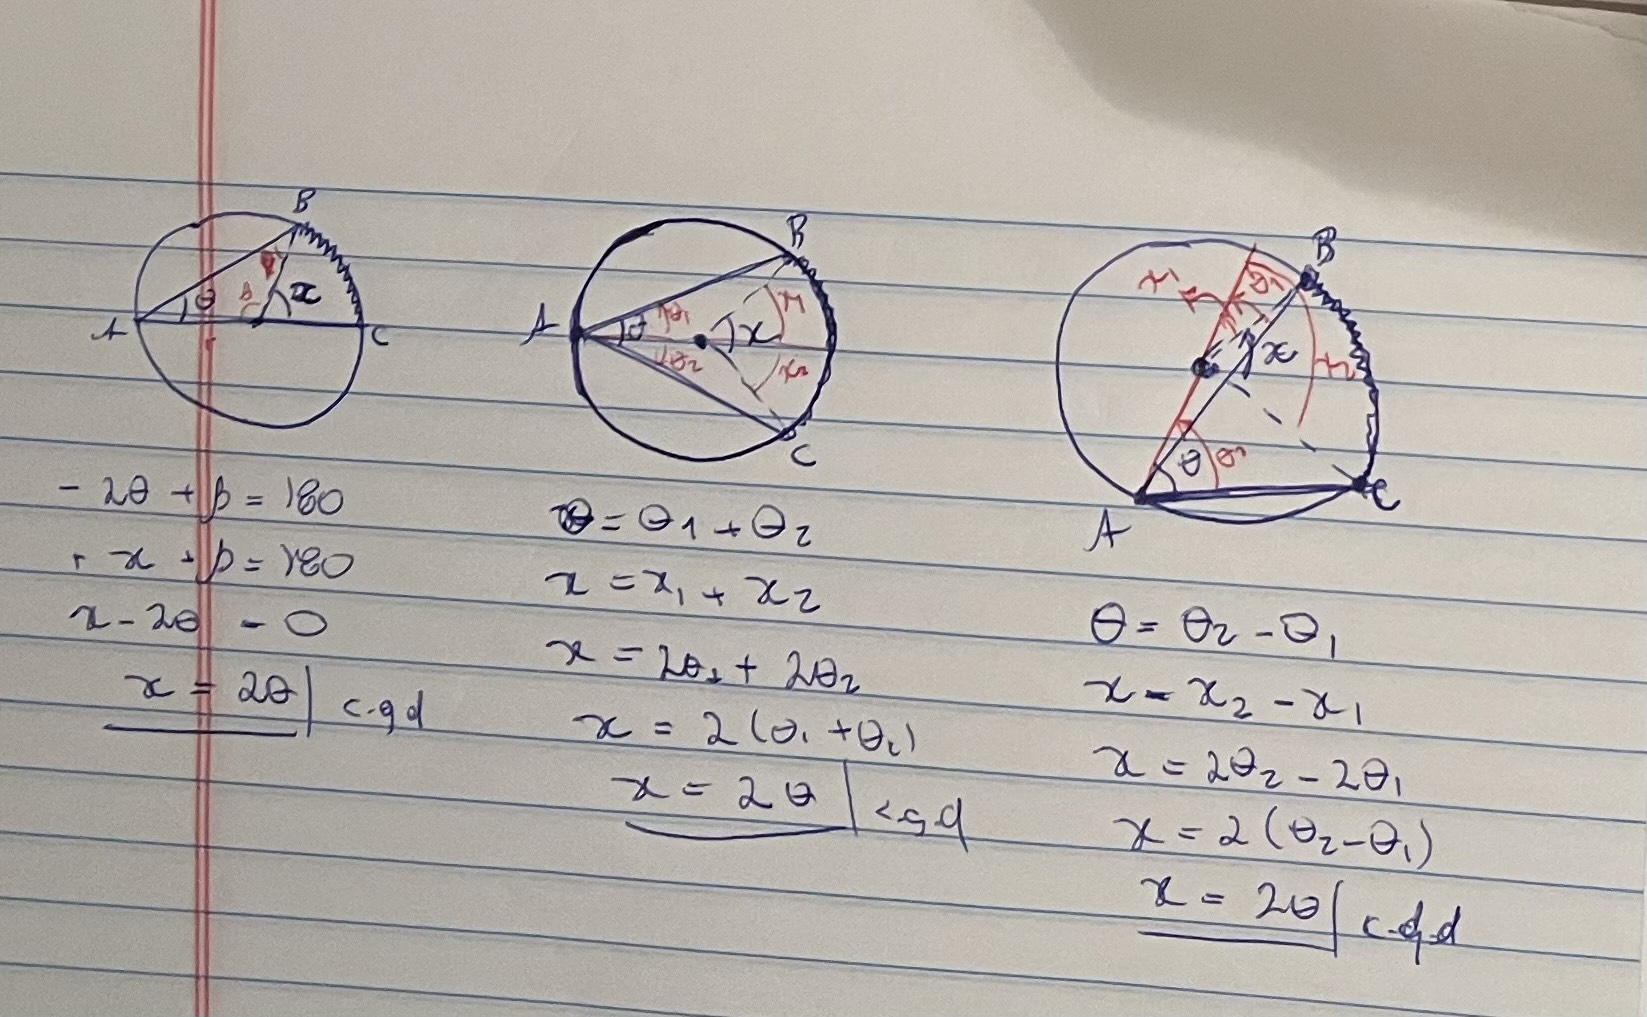 B
θ
β
x
A
C
- 2θ + β = 180
+ x + β = 180
x - 2θ = 0
x = 2θ | c.q.d
B
A
θ
θ1
θ2
x
x1
x2
C
θ = θ1 + θ2
x = x1 + x2
x = 2θ1 + 2θ2
x = 2 (θ1 + θ2)
x = 2θ | c.q.d
B
x1
θ1
x
x2
θ
θ2
A
C
θ = θ2 - θ1
x = x2 - x1
x = 2θ2 - 2θ1
x = 2 (θ2 - θ1)
x = 2θ | c.q.d